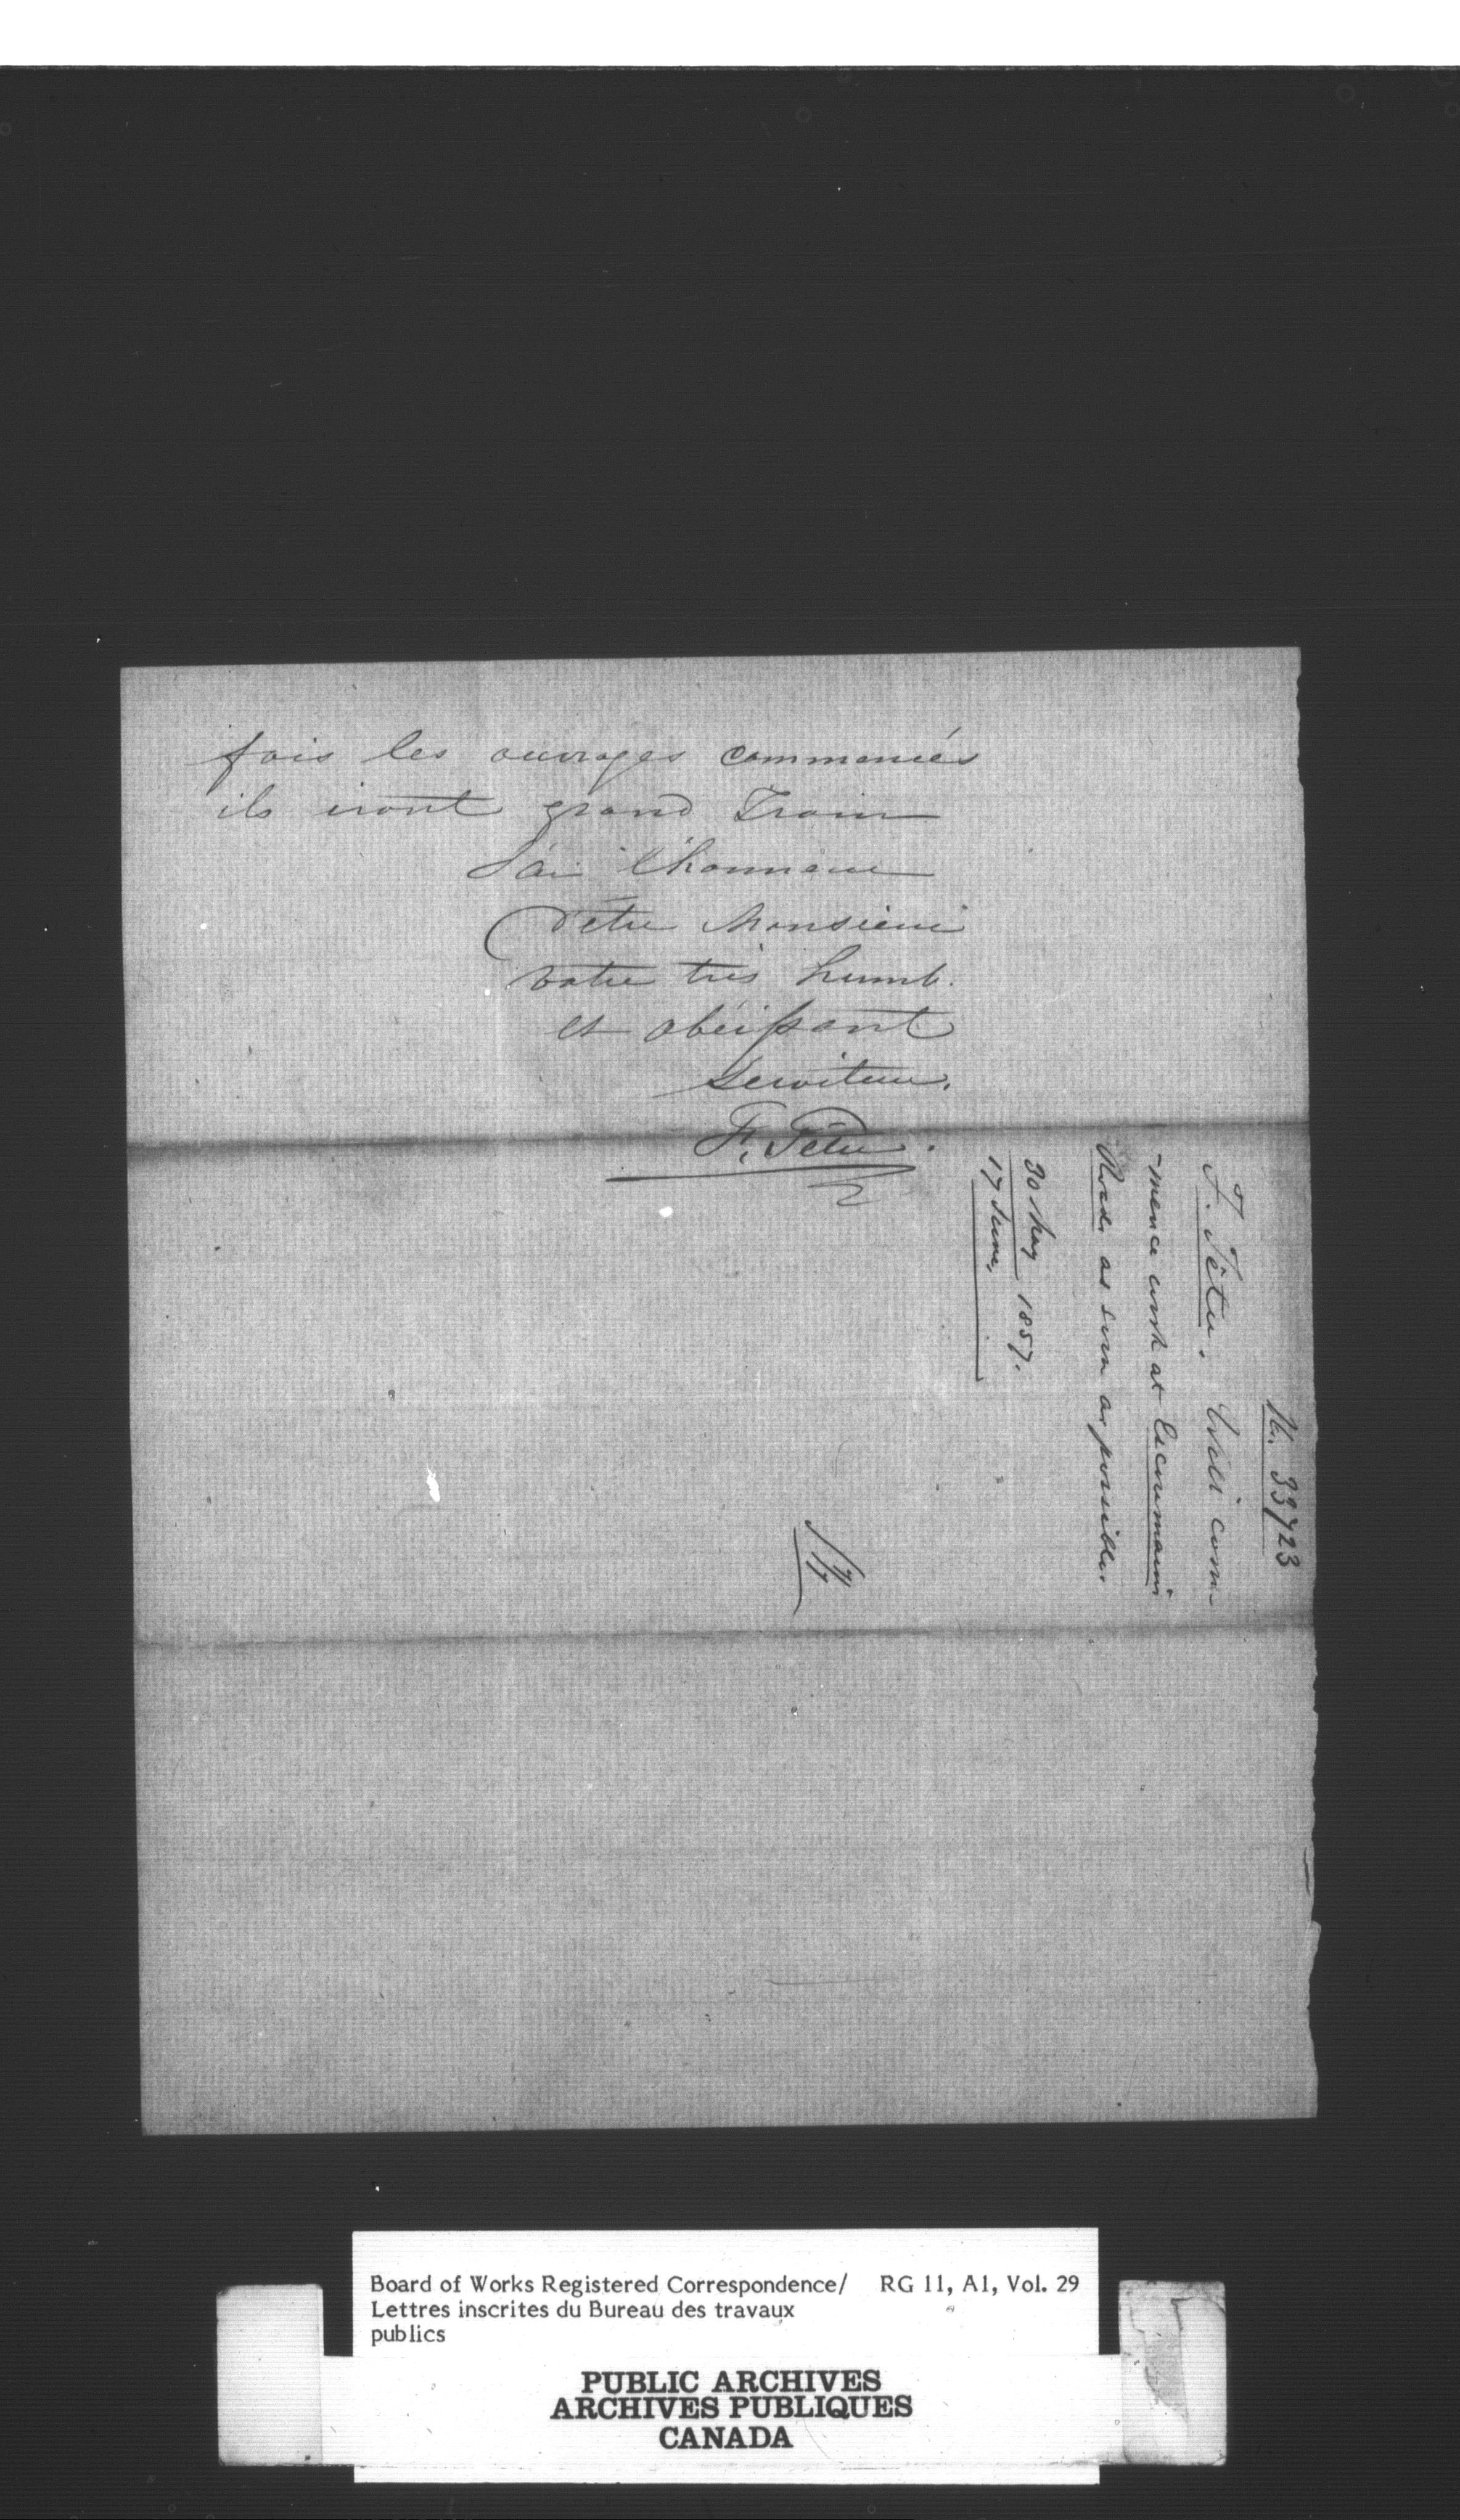 fois les ouvrages commencés
ils iront grand Train
J'ai l'honneur
d'être Monsieur
votre très humb.
et obéissant
Serviteur.
F. Têtu.
No. 33723
F. Têtu. Will com-
-mence work at Escoumains
Roads as soon as possible.
30 May 1857.
17 June,
Board of Works Registered Correspondence/ RG 11, A1, Vol. 29
Lettres inscrites du Bureau des travaux
publics
PUBLIC ARCHIVES
ARCHIVES PUBLIQUES
CANADA